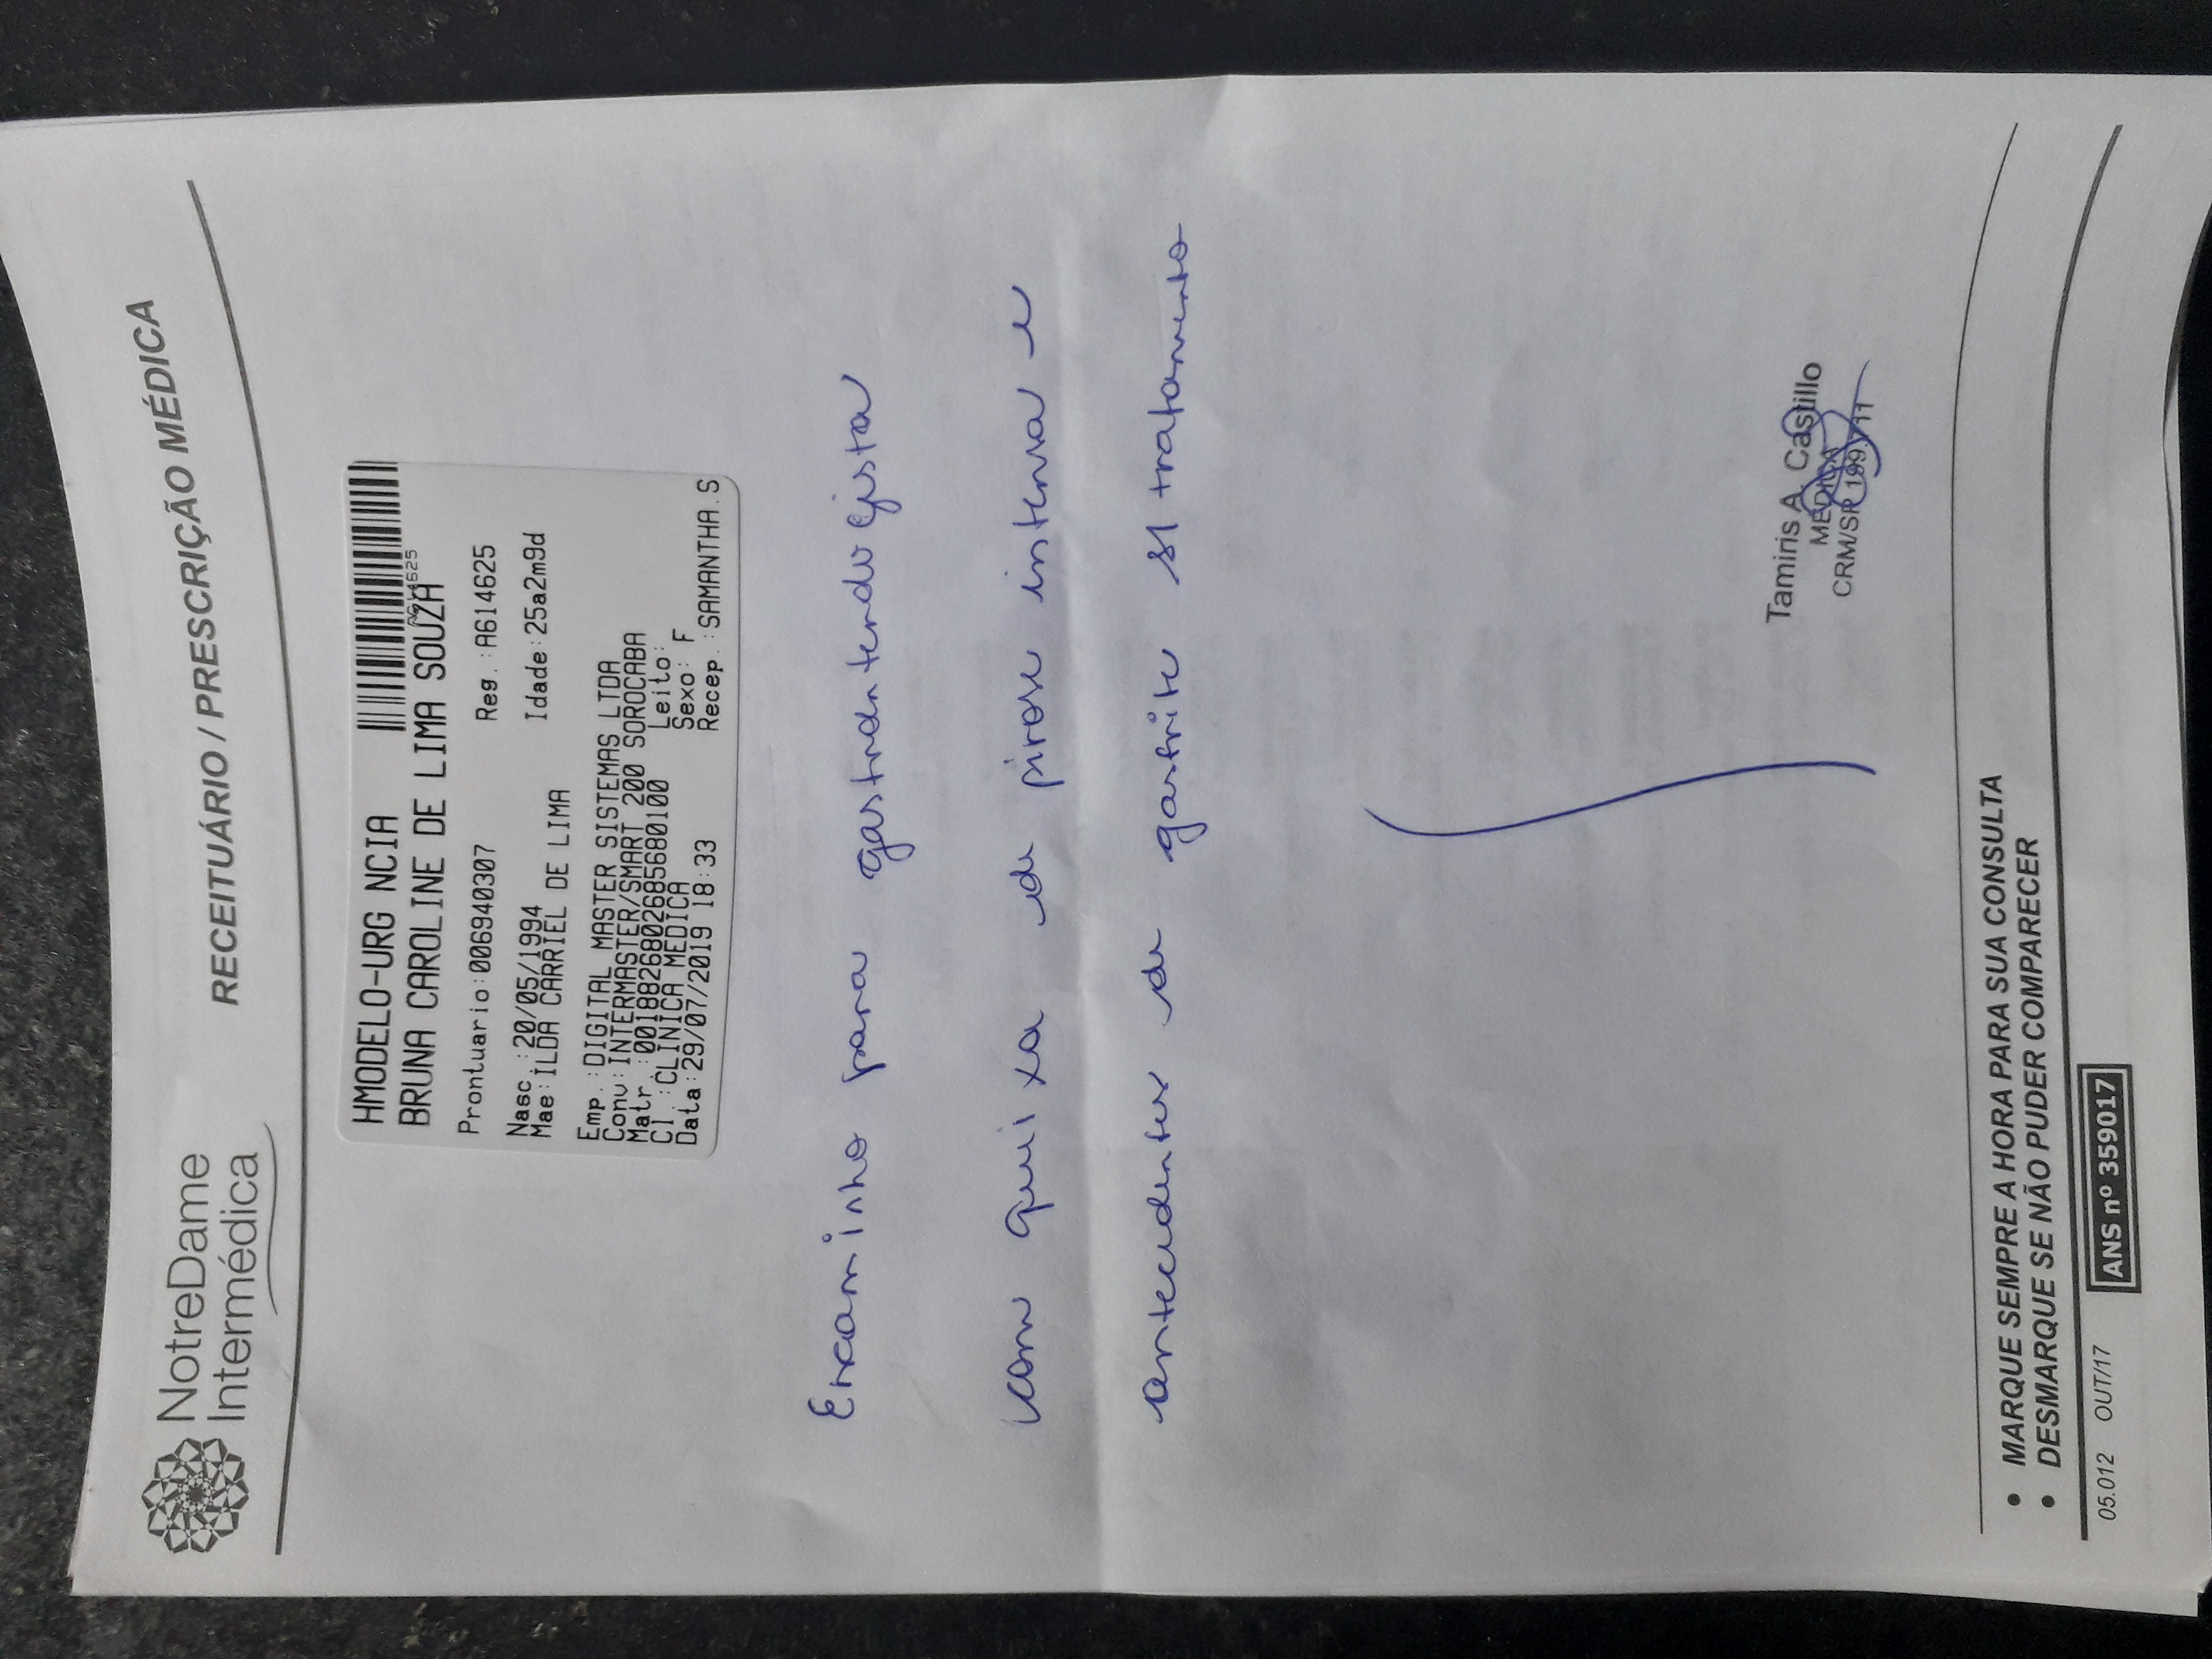 NotreDame
Intermédica
RECEITUÁRIO / PRESCRIÇÃO MÉDICA
HMODELO-URG NCIA
A614625
BRUNA CAROLINE DE LIMA SOUZA
Prontuario:006940307 Reg.:A614625
Nasc.:20/05/1994 Idade:25a2m9d
Mae:ILDA CARRIEL DE LIMA
Emp.:DIGITAL MASTER SISTEMAS LTDA
Conv:INTERMASTER/SMART 200 SOROCABA
Matr.:0018826802685680100 Leito:
Cl.:CLINICA MEDICA Sexo: F
Data:29/07/2019 18:33 Recep.:SAMANTHA.S
Encaminho para gastroenterologista
com queixa de pirose intensa e
antecedentes de gastrite s/ tratamento
Tamiris A. Castillo
MÉDICA
CRM/SP
• MARQUE SEMPRE A HORA PARA SUA CONSULTA
• DESMARQUE SE NÃO PUDER COMPARECER
05.012 OUT/17 ANS nº 359017